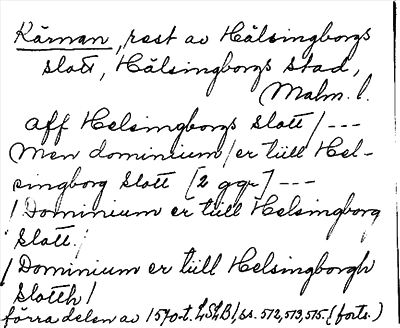 Kärnan, rest av Hälsingborgs
slott, Hälsingborgs stad,
Malm. l.
aff Helsingborgs Slott / ---
Men dominium / er tiill Hel-
singborg Slott [2 ggr] ---
/ Dominium er tiill Helsingborg
Slott /
/ Dominium er tiill Helsingborgh
Slotth /
förra delen av 1570-t. LSLB 1, ss. 572, 573, 575. (forts.)